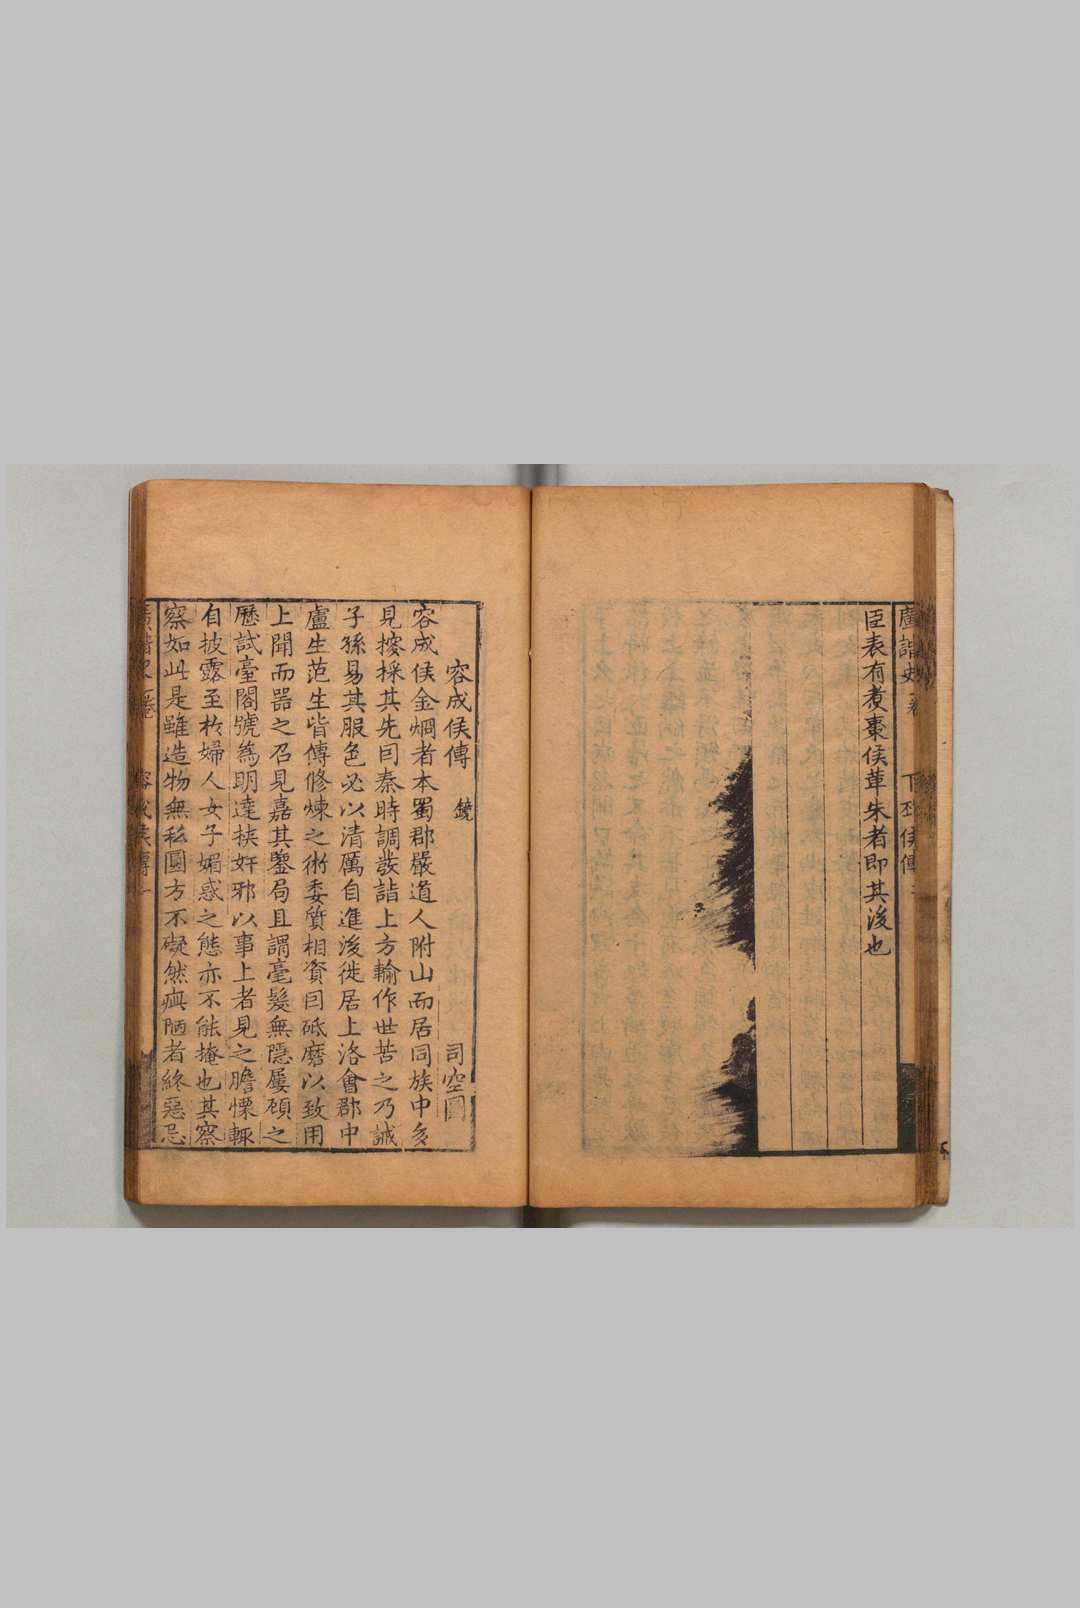 廣諧史 卷 下邳侯傳
臣表有煑棗侯革朱者即其後也
容成侯傳 鏡 司空圖
容成侯金炯者本蜀郡嚴道人附山而居同族中多
見搜採其先曰秦時調發詣上方輸作世苦之乃誡
子孫易其服色必以清厲自進後徙居上洛會郡中
盧生范生皆傳修煉之術委質相資曰砥磨以致用
上聞而器之召見嘉其鑒局且謂毫髮無隱屢顧之
歷試臺閣號為明達挾奸邪以事上者見之膽慄輒
自披露至於婦人女子媚惑之態亦不能掩也其察
察如此是雖造物無私圓方不礙然疵陋者終惡忌
容成侯傳